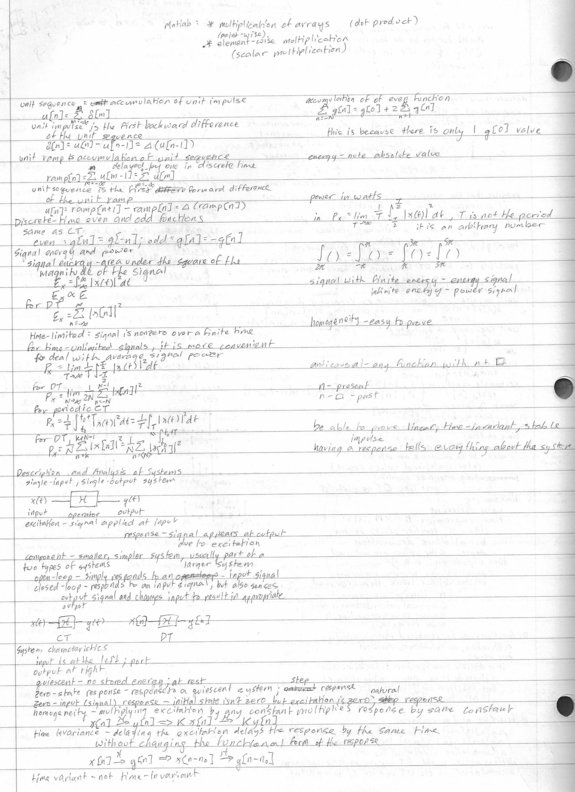 Matlab: * multiplication of arrays (dot product)
(point-wise)
.* element-wise multiplication
(scalar multiplication)
unit sequence = accumulation of unit impulse
u[n] = Σ δ[m]
unit impulse is the first backward difference
of the unit sequence
δ[n] = u[n] - u[n-1] = Δ(u[n-1])
unit ramp is accumulation of unit sequence
delayed by one in discrete time
ramp[n] = Σ u[m-1] = Σ u[m]
unit sequence is the first forward difference
of the unit ramp
u[n] = ramp[n+1] - ramp[n] = Δ(ramp[n])
Discrete-time even and odd functions
same as CT
even: g[n] = g[-n]; odd: g[n] = -g[n]
Signal energy and power
signal energy - area under the square of the
magnitude of the signal
Eₓ = ∫ |x(t)|² dt
Eₓ ∝ E
for DT
Eₓ = Σ |x[n]|²
time-limited: signal is nonzero over a finite time
for time-unlimited signals, it is more convenient
to deal with average signal power
Pₓ = lim T→∞ 1/T ∫ |x(t)|² dt
for DT
Pₓ = lim N→∞ 1/2N Σ |x[n]|²
for periodic CT
Pₓ = 1/T ∫ |x(t)|² dt = 1/T ∫ |x(t)|² dt
for DT
Pₓ = 1/N Σ |x[n]|² = 1/N Σ |x[n]|²
Description and Analysis of Systems
single-input, single-output system
x(t) — H — y(t)
input operator output
excitation - signal applied at input
response - signal appears at output
due to excitation
component - smaller, simpler system, usually part of a
larger system
two types of systems
open-loop - simply responds to an input signal
closed-loop - responds to an input signal, but also senses
output signal and changes input to result in appropriate
output
x(t) — H — y(t) x[n] — H — y[n]
CT DT
System characteristics
input is at the left; port
output at right
quiescent - no stored energy; at rest
zero-state response - response to a quiescent system; step response
zero-input (signal) response - initial state isn't zero but excitation is zero; natural response
homogeneity - multiplying excitation by any constant multiplies response by same constant
x[n] →H y[n] ⇒ K x[n] →H K y[n]
time invariance - delaying the excitation delays the response by the same time
without changing the functional form of the response
x[n] →H y[n] ⇒ x[n-n₀] →H y[n-n₀]
time variant - not time-invariant
accumulation of of even function
Σ g[n] = g[0] + 2 Σ g[n]
this is because there is only 1 g[0] value
energy - note absolute value
power in watts
in Pₓ = lim T→∞ 1/T ∫ |x(t)|² dt, T is not the period
it is an arbitrary number
∫ ( ) = ∫ ( ) = ∫ ( ) = ∫ ( )
signal with finite energy - energy signal
infinite energy - power signal
homogeneity - easy to prove
anticausal - any function with n + □
n - present
n - □ - past
be able to prove linear, time-invariant, stable
impulse
having a response tells everything about the system